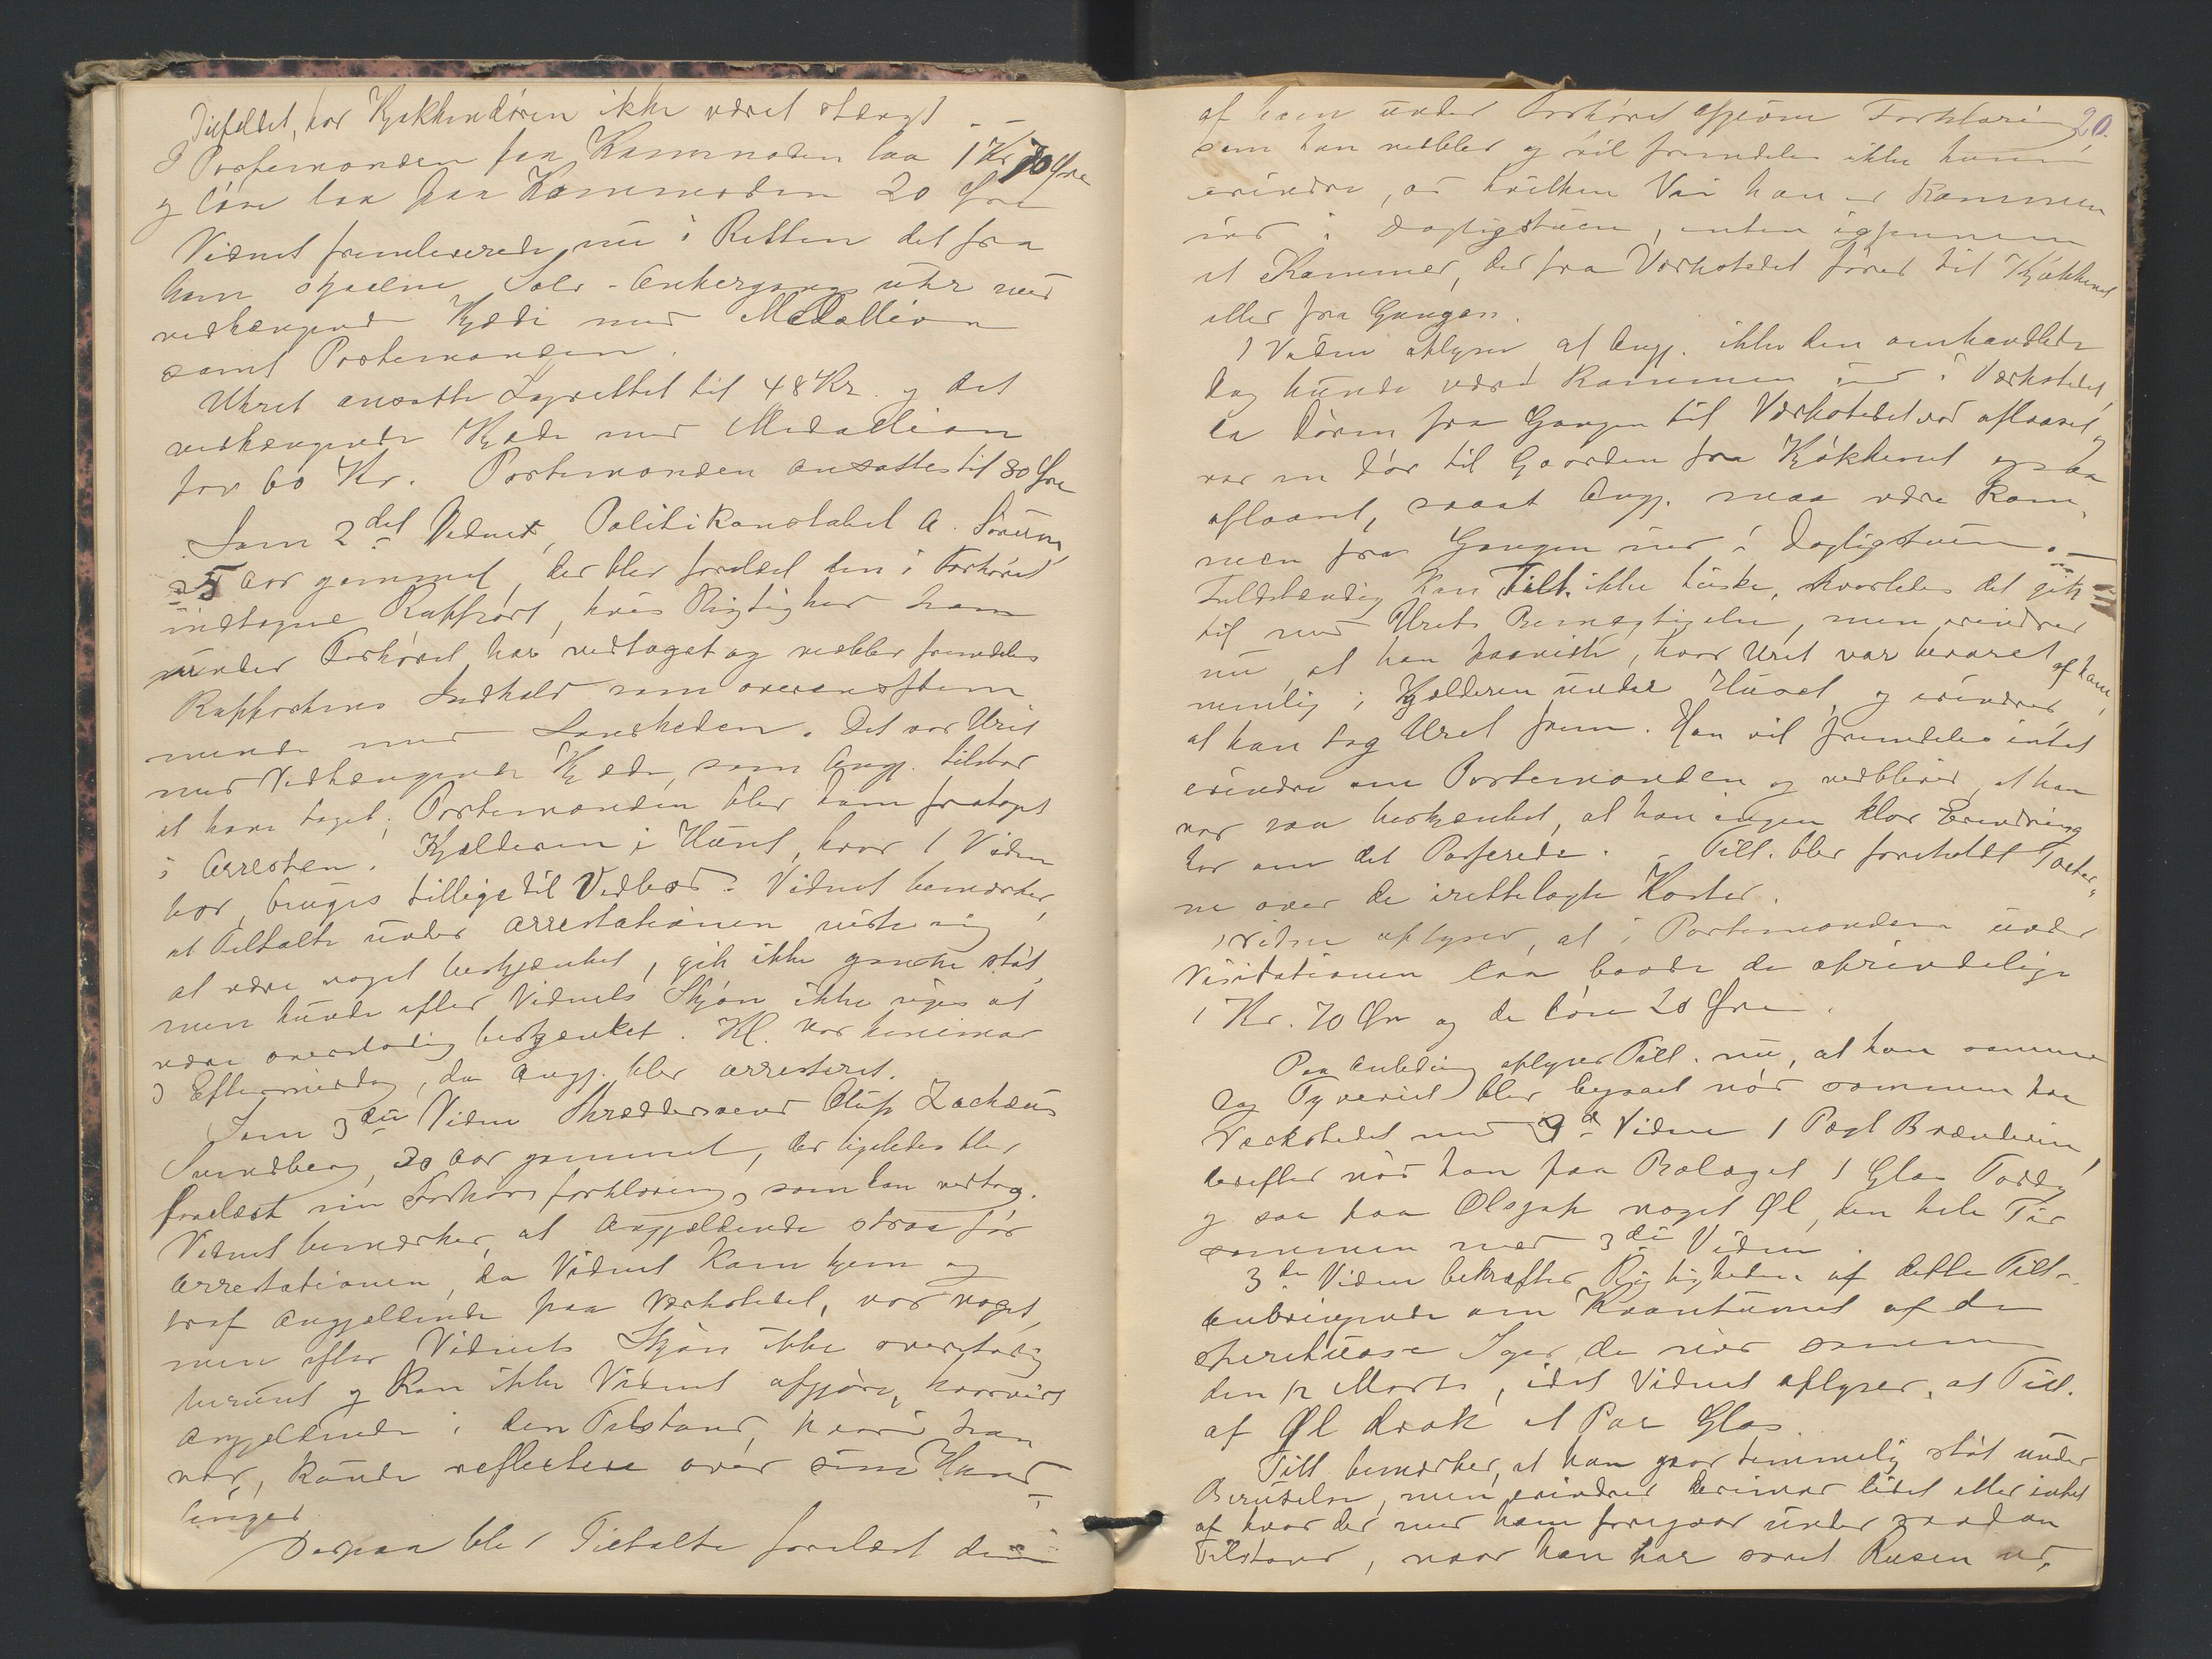 Tilfældet, har Kjøkkendøren ikke været stængt
I Portemonnæen paa Kammoden laa 1 Kr 70 Øre
og løse laa paa Kommoden 20 Øre
Vidnet fremleverede nu i Retten det fra
ham stjaalne Sølv-Ankergangsuhr med
vedhængende Kjæde med Medallion
samt Portemonæen.
Uhret ansatte Lagrettet til 48 Kr. og det
vedhængende Kjæde med Medallion
for 60 Kr. Portemonæen ansattes til 80 Øre
Som 2det Vidnet, Politikonstabel A. Sørum,
25 Aar gammel, der blev forelæst den i Forhøret
indtagne Rapport, hvis Rigtighed han
under Forhøret har vedtaget og vedblev fremdeles
Rapportens Indhold som overensstem
mende med Sandheden. Det var Uret
med Vedhængende Kjæde, som Angj. tilstod
at have taget; Portemonæen blev ham frataget
i Arresten. Kjælderen i Huset, hvor 1 Vidne
bor, bruges tillige til Vedbod. Vidnet bemærker,
at Tiltalte under Arrestationen viste sig
at være noget beskjænket, gik ikke ganske støt,
men kunde efter Vidnets Skjøn ikke siges at
være overstadig beskjænket. Kl. var henimod
3 Eftermiddag, da Angj. blev arresteret.
Som 3die Vidne Skræddersvend Oluf Zachæus
Sundberg, 30 Aar gammel, der ligeledes blev
forelæst sin Forhørsforklaring, som han vedtog.
Vidnet bemærker, at Angjældende strax før
Arrestationen, da Vidnet kom hjem og
traf Angjældende paa Værkstedet, var noget,
men efter Vidnets Skjøn ikke overstadig
beruset og kan ikke Vidnet afgjøre, hvorvidt
Angjældende i den Tilstand, hvori han
var, kunde reflectere over sine Hand
linger
Derpaa blev Tiltalte forelæst den
20.
af ham under Forhøret afgivne Forklaring,
som han vedblev og vil fremdeles ikke kunne
erindre, ad hvilken Vei han er kommen
ind i Dagligstuen, enten igjennem
et Kammer, der fra Værkstedet fører til Kjøkkenet
eller fra Gangen.
1 Vidne oplyser at Angj. ikke den omhandlede
Dag kunde være kommen ind i Værkstedet,
da Døren fra Gangen til Værkstedet var aflaaset, og
var en Dør til Gaarden fra Kjøkkenet ogsaa
aflaaset, saaat Angj. maa være kom-
men fra Gangen ind i Dagligstuen. —
Fuldstændig kan Tilt. ikke huske, hvorledes det gik
til med Urets Bemægtigelse, men erindrer
nu, at han paaviste, hvor Uret var bevaret af ham,
nemlig i Kjælderen under Huset, og erindrer,
at han tog Uret frem. Han vil fremdeles intet
erindre om Portemonæen og vedbliver, at han
var saa beskjænket, at han ingen klar Erindring
har om det Passerede. — Tilt. blev foreholdt Toster-
ne over de irettelagte Koster.
1 Vidne oplyser, at i Portemonæen under
Visitationen laa baade de oprindelige
1 Kr. 70 Øre og de løse 20 Øre.
Paa Anledning oplyser Tilt. nu, at han samme
Dag Tyveriet blev begaaet nød sammen paa
Værkstedet med 3d Vidne 1 Pægl Brændevin,
derefter nød han paa Bolaget 1 Glas Toddy
og saa paa Ølsjap noget Øl, den hele Tid
sammen med 3die Vidne.
3de Vidne bekræfter Rigtigheden af dette Tilt.
Anbringende om Kvantumet af de
spirituøse Sager, de nød sammen
den 12 Marts, idet Vidnet oplyser, at Tilt.
af Øl drak et Par Glas.
Tilt. bemærker, at han gaar temmelig støt under
Beruselse, men erindrer derimod lidet eller intet
af hvad der med ham foregaar under saadan
Tilstand, naar han har sovet Rusen ud,